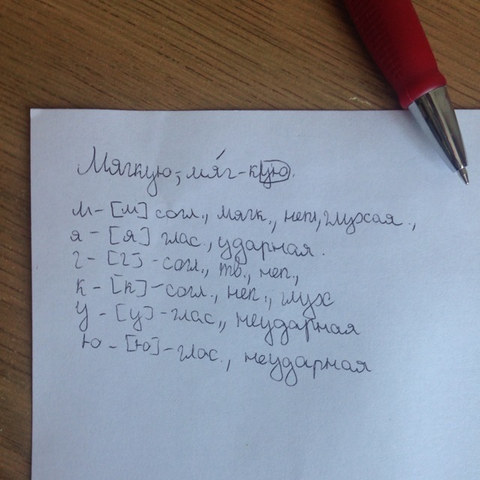 Мягкую; мя́г-кую.
м - [м] согл., мягк., неп, глухая.,
я - [я] глас., ударная.
г - [г] - согл., тв., неп.,
к - [к] - согл., неп., глух
у - [у] - глас., неударная
ю - [ю] - глас., неударная